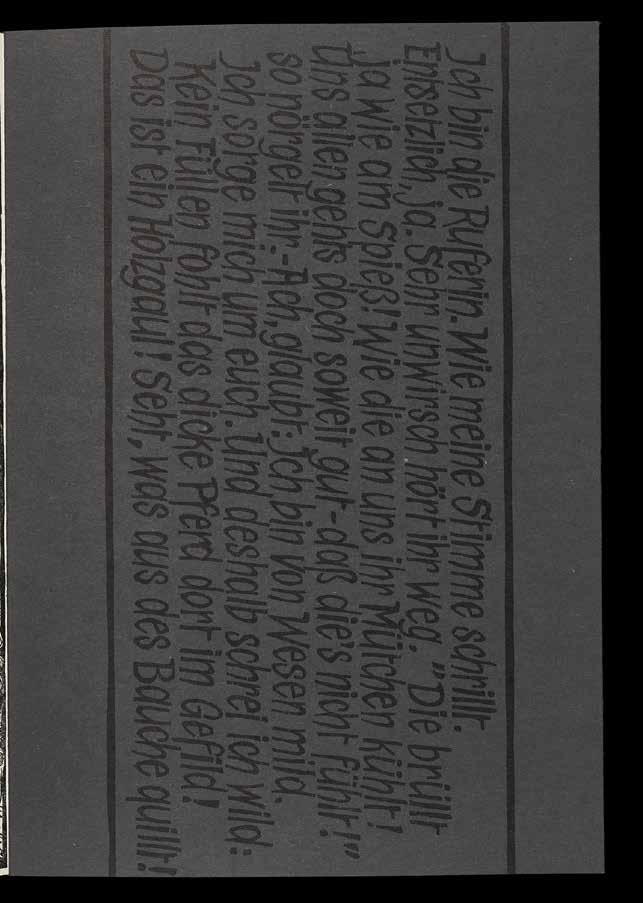 Ich bin die Ruferin. Wie meine Stimme schrillt.
Entsetzlich, ja. Sehr unwirsch hört ihr weg. "Die brüllt
ja wie am Spieß! Wie die an uns ihr Mütchen kühlt!
Uns allen gehts doch soweit gut - daß die's nicht fühlt!"
so nörgelt ihr: - Ach, glaubt: Ich bin von Wesen mild.
Ich sorge mich um euch. Und deshalb schrei ich wild:
Kein Füllen fohlt das dicke Pferd dort im Gefild!
Das ist ein Holzgaul! Seht, was aus des Bauche quillt!